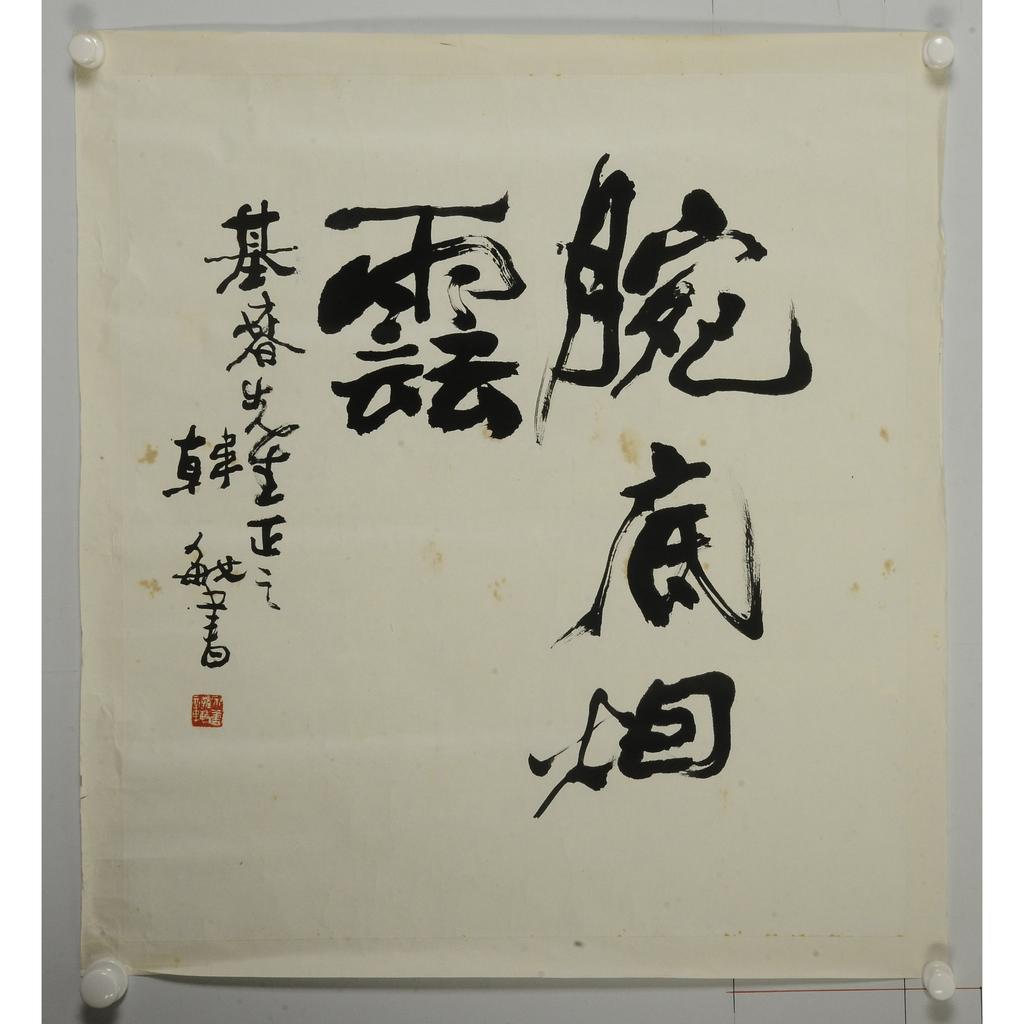 腕底烟
雲
基春先生正之
韓敏書